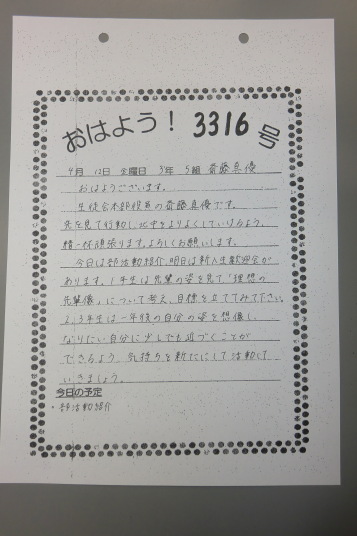 おはよう！ 3316号
4月 12日 金曜日 3年 5組 斎藤真優
おはようございます。
生徒会本部役員の斎藤真優です。
先を見て行動し、北中をよりよくしていけるよう、
精一杯頑張ります。よろしくお願いします。
今日は部活動紹介、明日は新入生歓迎会が
あります。1年生は先輩の姿を見て「理想の
先輩像」について考え、目標を立ててみて下さい。
2,3年生は一年後の自分の姿を想像し、
なりたい自分に少しでも近づくことが
できるよう、気持ちを新たにして活動して
いきましょう。
今日の予定
・部活動紹介